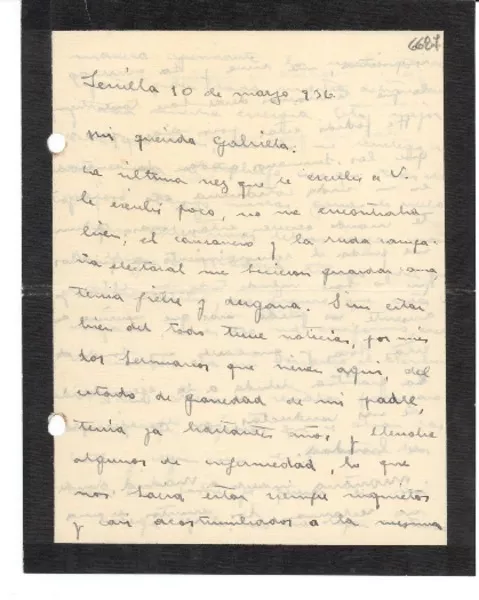 6627
Sevilla 10 de marzo 936
Mi querida Gabriela.
La última vez que le escribí a V.
le escribí poco, no me encontraba
bien; el cansancio y la ruda campa-
ña electoral me hicieron guardar cama
tenía fiebre y desgana. Sin estar
bien del todo tuve noticias, por mis
dos hermanos que viven aquí, del
estado de gravedad de mi padre,
tenía ya bastantes años, y llevaba
algunos de enfermedad, lo que
nos hacía estar siempre inquietos
y casi acostumbrados a la misma